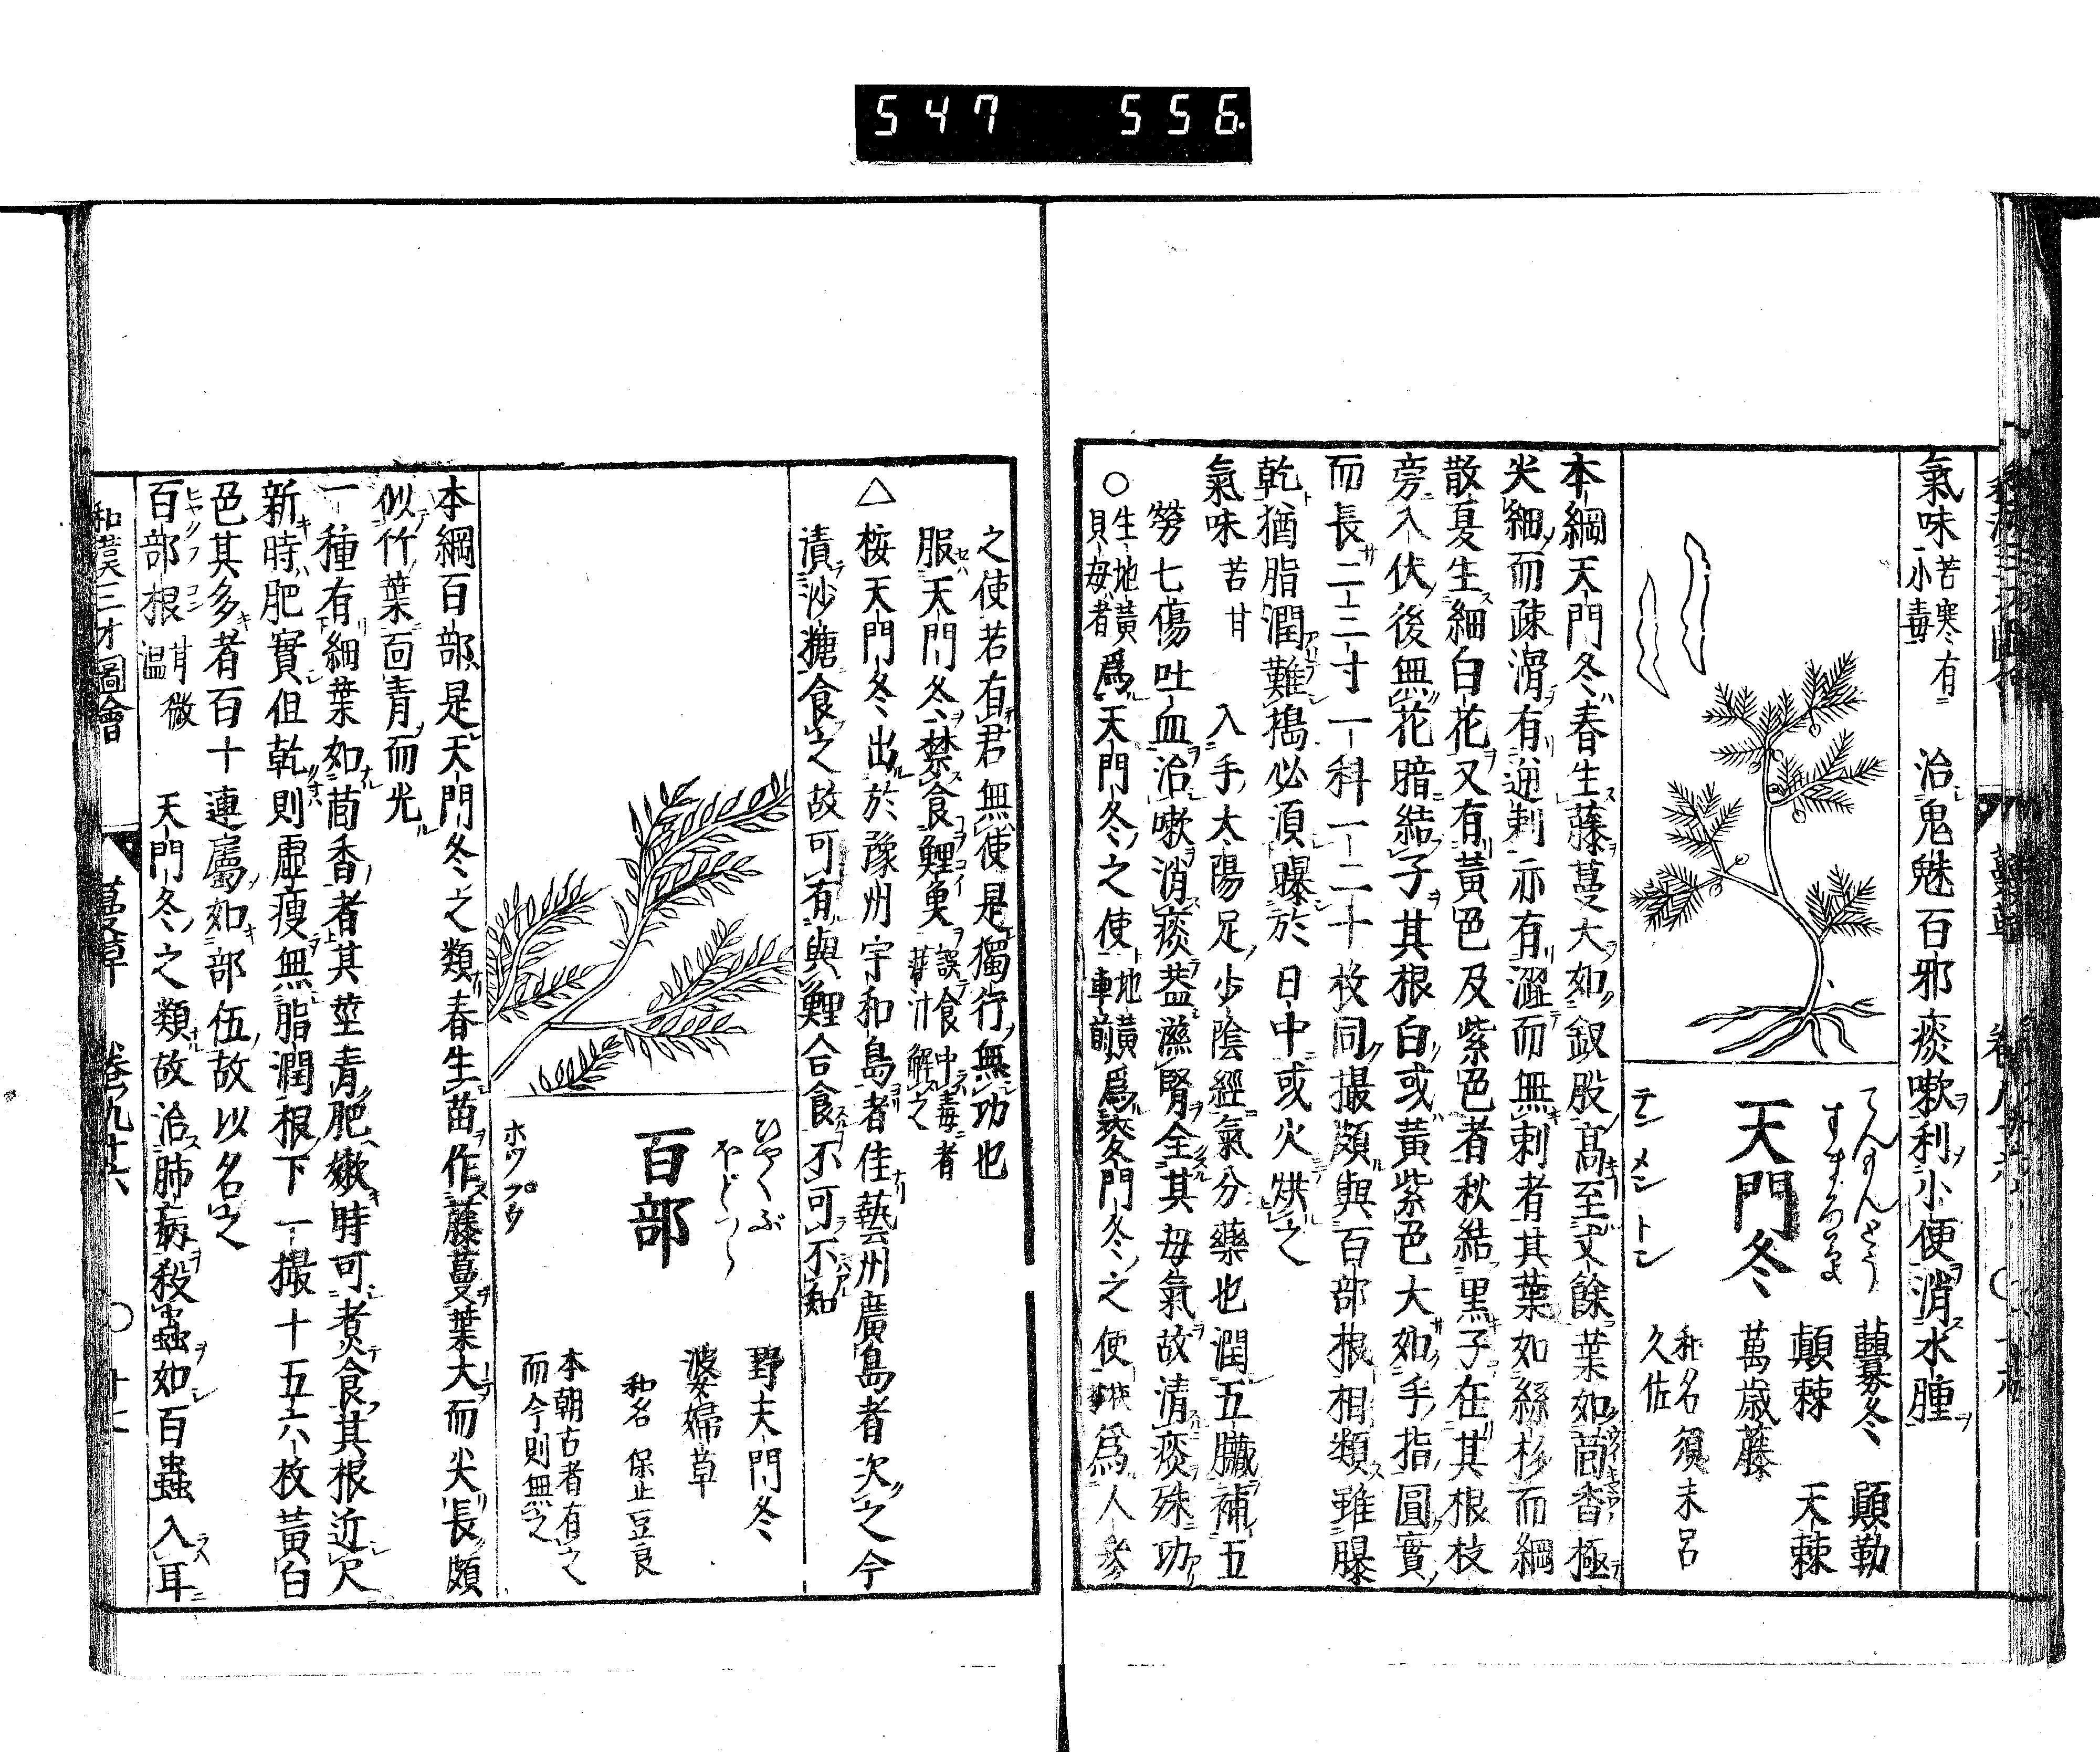 547 556
氣味苦寒有小毒 治鬼魅百邪痰嗽利小便消水腫
てんもんとう
天門冬
テン メン トン
虋冬 顚勒
顚棘 天棘
萬歲藤
和名須末呂久佐
本綱天門冬春生藤蔓大如釵股高至丈餘葉如茴香極
尖細而疎滑有逆刺亦有澀而無刺者其葉如絲杉而細
散夏生細白花又有黃色及紫色者秋結黑子在其根枝
旁入伏後無花暗結子其根白或黃紫色大如手指圓實
而長二三寸一科一二十枚同撮頗與百部根相類雖曝
乾猶脂潤難搗必須曝於日中或火烘之
氣味苦甘 入手太陽足少陰經氣分藥也潤五臟補五
勞七傷吐血治嗽消痰蓋滋腎全其母氣故清痰殊功
○生地黃貝母者爲天門冬之使 地黃車前爲麥門冬之使 茯爲人參
之使若有君無使是獨行無功也
服天門冬禁食鯉魚誤食中毒者萍汁解之
△桉天門冬出於豫州宇和島者佳藝州廣島者次之今
漬沙糖食之故可有與鯉合食不可不知
ひやくぶ
ほどつら
百部
ホツ プウ
野天門冬
婆婦草
和名 保止豆良
本朝古者有之而今則無之
本綱百部是天門冬之類春生苗作藤蔓葉大而尖長頗
似竹葉面青而光
一種有細葉如茴香者其莖青肥嫩時可煮食其根近尺
新時肥實但乾則虛瘦無脂潤根下一撮十五六枚黃白
色其多者百十連屬如部伍故以名之
百部根甘微溫 天門冬之類故治肺病殺蟲如百蟲入耳
和漢三才圖會 蔓草 卷九十六 ○ 十七